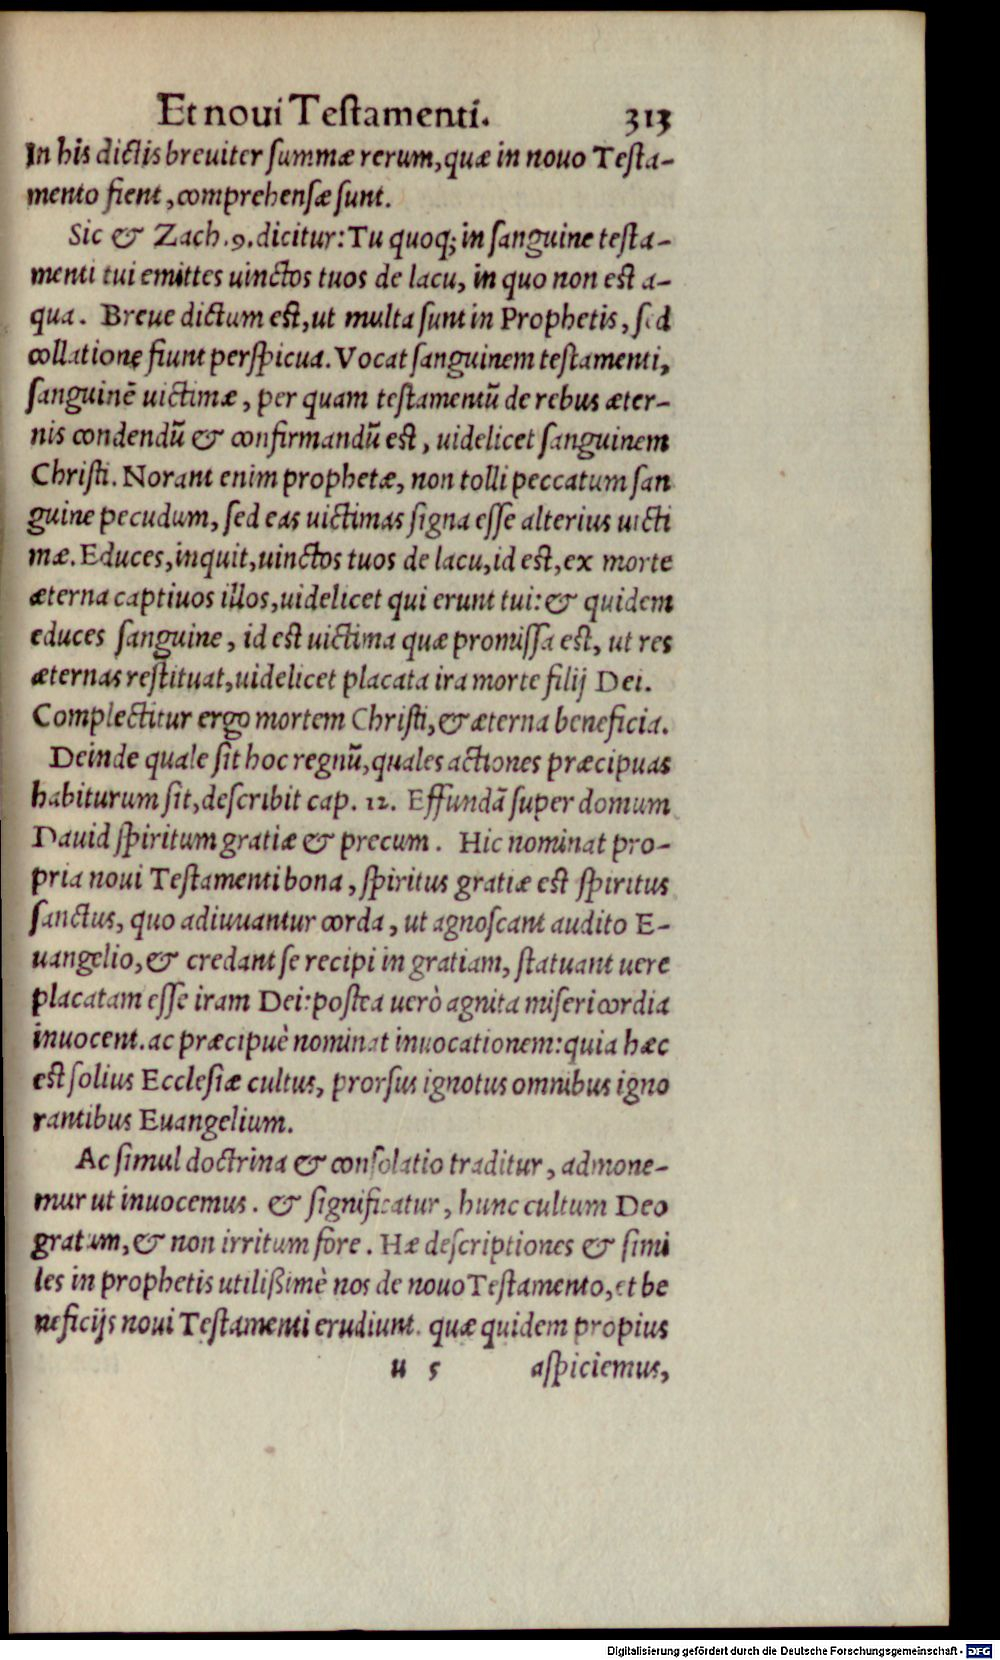 Et noui Testamenti. 313
In his dictis breuiter summæ rerum, quæ in nouo Testa-
mento fient, comprehensæ sunt.
Sic & Zach. 9. dicitur: Tu quoq; in sanguine testa-
menti tui emittes uinctos tuos de lacu, in quo non est a-
qua. Breue dictum est, ut multa sunt in Prophetis, sed
collatione fiunt perspicua. Vocat sanguinem testamenti,
sanguinē uictimæ, per quam testamentū de rebus æter-
nis condendū & confirmandū est, uidelicet sanguinem
Christi. Norant enim prophetæ, non tolli peccatum san
guine pecudum, sed eas uictimas signa esse alterius uicti
mæ. Educes, inquit, uinctos tuos de lacu, id est, ex morte
æterna captiuos illos, uidelicet qui erunt tui: & quidem
educes sanguine, id est uictima quæ promissa est, ut res
æternas restituat, uidelicet placata ira morte filij Dei.
Complectitur ergo mortem Christi, & æterna beneficia.
Deinde quale sit hoc regnū, quales actiones præcipuas
habiturum sit, describit cap. 12. Effundā super domum
Dauid spiritum gratiæ & precum. Hic nominat pro-
pria noui Testamenti bona, spiritus gratiæ est spiritus
sanctus, quo adiuuantur corda, ut agnoscant audito E-
uangelio, & credant se recipi in gratiam, statuant uere
placatam esse iram Dei: postea uerò agnita misericordia
inuocent. ac præcipuè nominat inuocationem: quia hæc
est solius Ecclesiæ cultus, prorsus ignotus omnibus igno
rantibus Euangelium.
Ac simul doctrina & consolatio traditur, admone-
mur ut inuocemus. & significatur, hunc cultum Deo
gratum, & non irritum fore. Hæ descriptiones & simi
les in prophetis utilißimè nos de nouo Testamento, et be
neficijs noui Testamenti erudiunt. quæ quidem propius
u 5 aspiciemus,
Digitalisierung gefördert durch die Deutsche Forschungsgemeinschaft - DFG